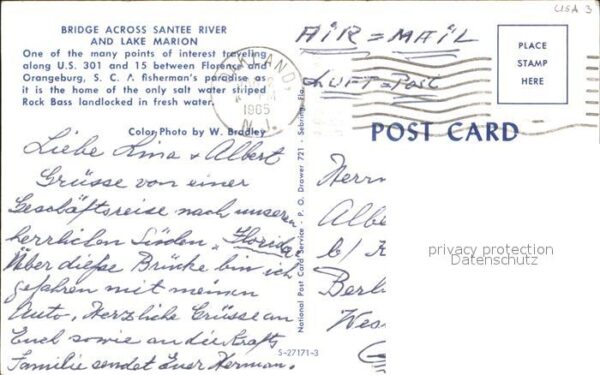 USA 3
BRIDGE ACROSS SANTEE RIVER
AND LAKE MARION
One of the many points of interest traveling
along U.S. 301 and 15 between Florence and
Orangeburg, S. C. A fisherman's paradise as
it is the home of the only salt water striped
Rock Bass landlocked in fresh water.
Color Photo by W. Bradley
Liebe Lina + Albert
Grüsse von einer
Geschäftsreise nach unseren
herrlichen Süden „Florida"
Über diese Brücke bin ich
gefahren mit meinen
Auto, Herzliche Grüsse an
Euch sowie an die Krafts
Familie sendet Euer Herman.
National Post Card Service - P. O. Drawer 721 - Sebring, Fla.
S-27171-3
AIR = MAIL
LUFT = Post
OAKLAND,
1965
N.J.
PLACE
STAMP
HERE
POST CARD
Herrn
Albe
b/ K
Berl
Wes
privacy protection
Datenschutz